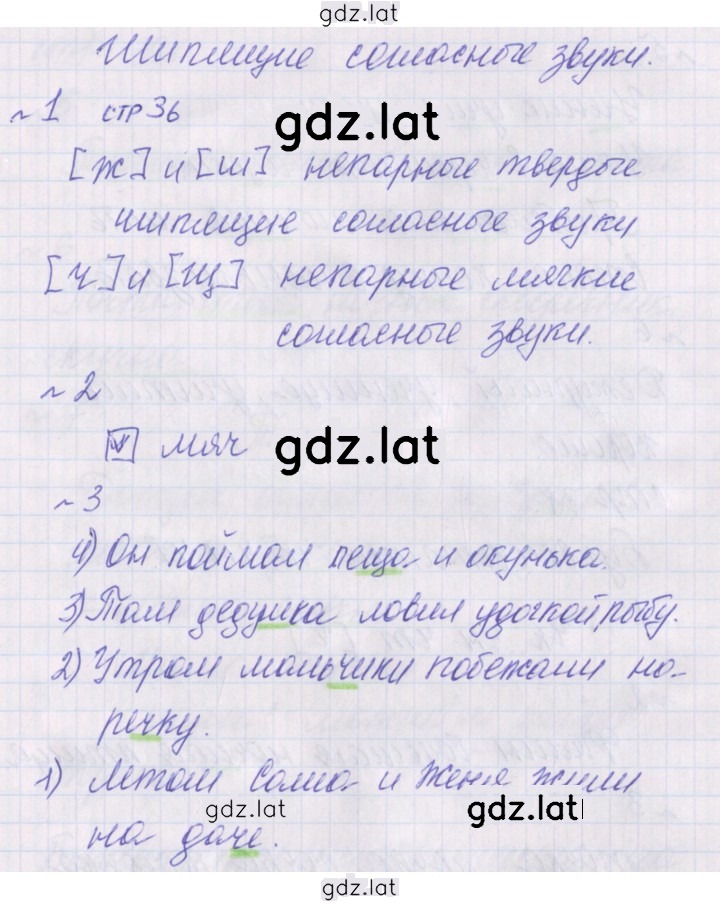 gdz.lat
Шипящие согласные звуки.
~1 стр 36
gdz.lat
[ж] и [ш] непарные твердые
шипящие согласные звуки
[ч] и [щ] непарные мягкие
согласные звуки.
~2
мяч
gdz.lat
~3
4) Он поймал леща и окунька.
3) Там дедушка ловил удочкой рыбу.
2) Утром мальчики побежали на
речку.
1) Летом Саша и Женя жили
gdz.lat gdz.lat
на даче.
gdz.lat